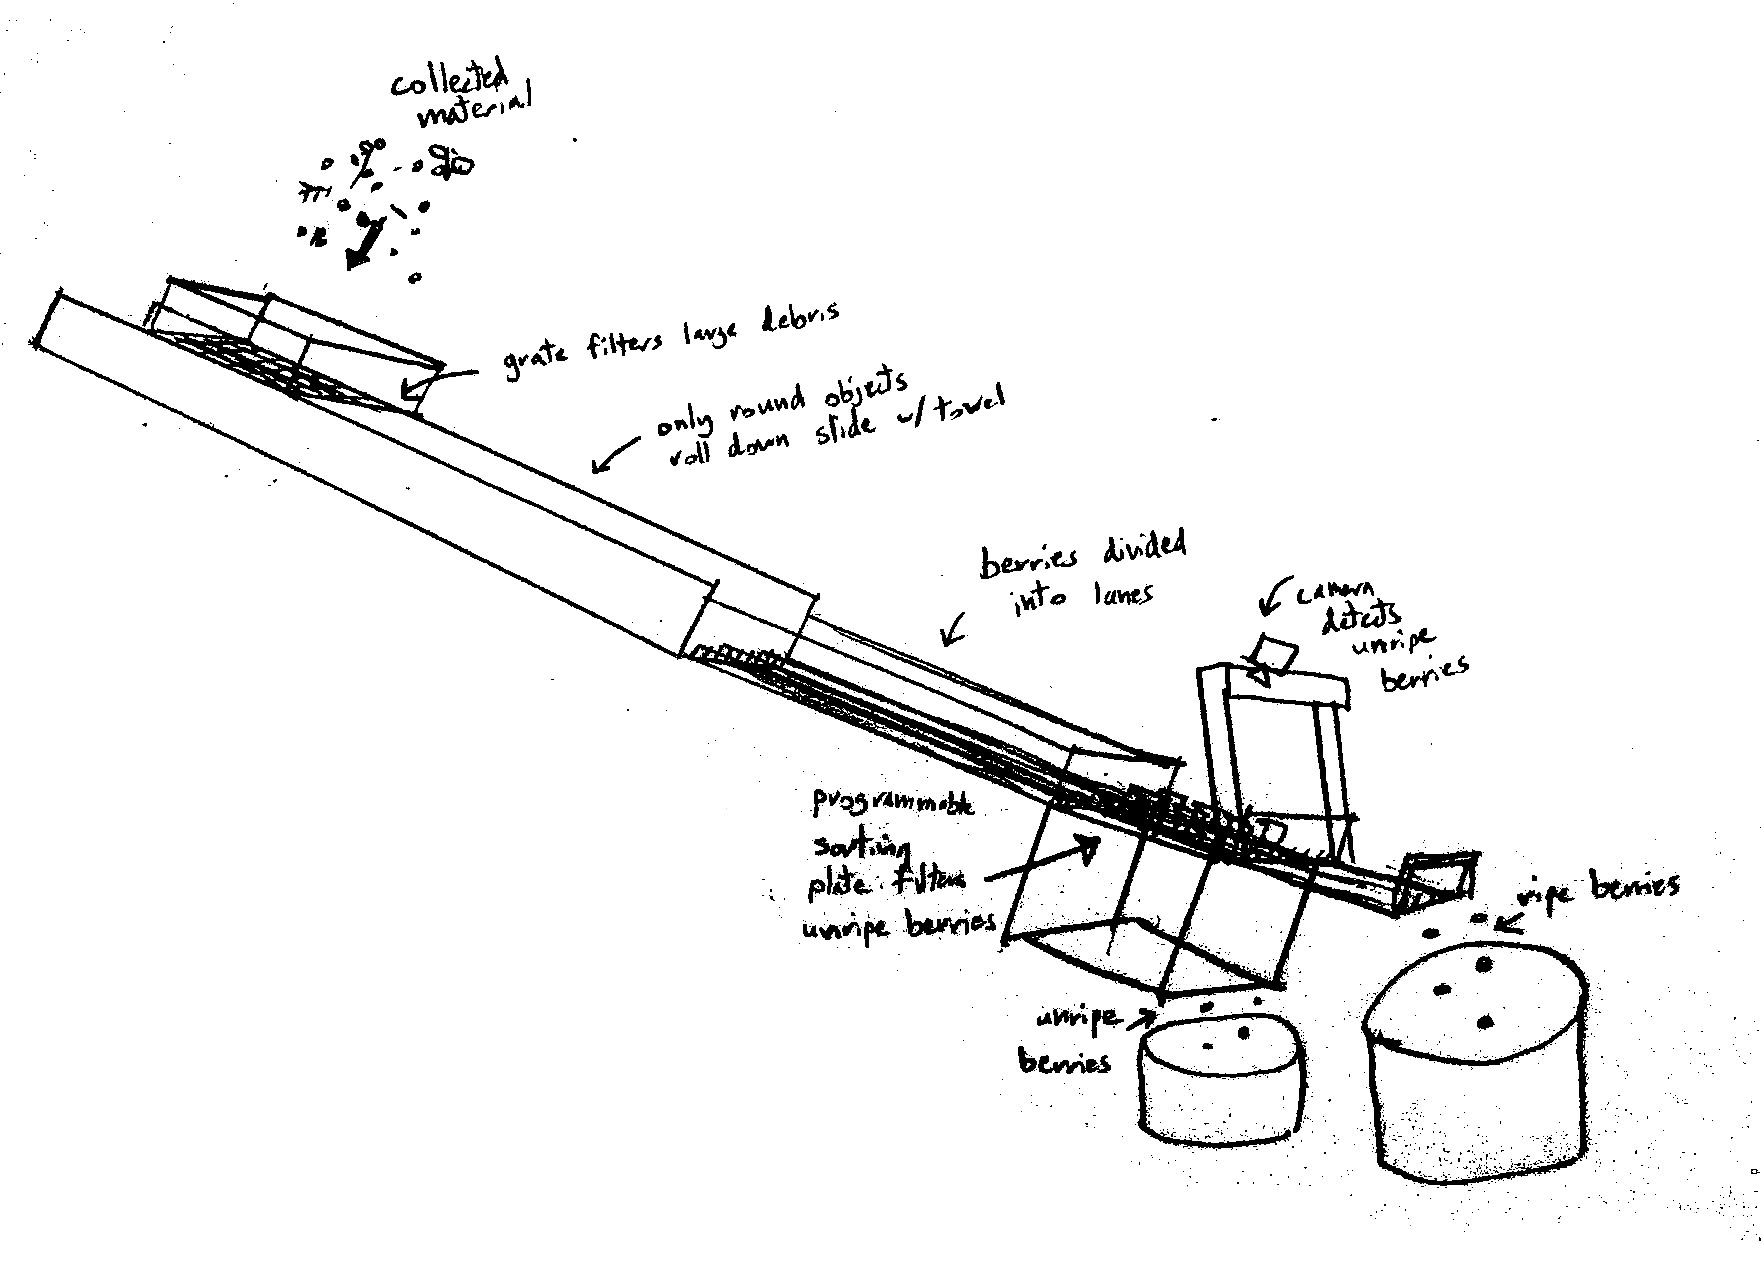 collected
material
grate filters large debris
only round objects
roll down slide w/ towel
berries divided
into lanes
camera
detects
unripe
berries
programmable
sorting
plate filters
unripe berries
ripe berries
unripe
berries